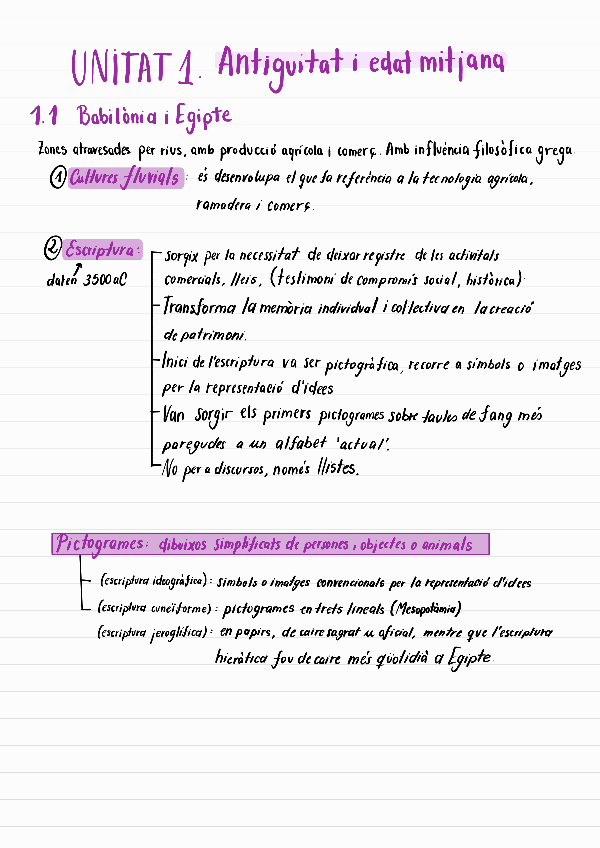 UNITAT 1. Antiguitat i edat mitjana
1.1 Babilònia i Egipte
Zones atravesades per rius, amb producció agrícola i comerç. Amb influència filosòfica grega.
1 Cultures fluvials: és desenvolupa el que fa referència a la tecnologia agrícola,
ramadera i comerç.
2 Escriptura:
daten 3500 aC
sorgix per la necessitat de deixar registre de les activitats
comercials, lleis, (testimoni de compromís social, històrica).
Transforma la memòria individual i col·lectiva en la creació
de patrimoni.
Inici de l'escriptura va ser pictogràfica, recorre a símbols o imatges
per la representació d'idees
Van sorgir els primers pictogrames sobre taules de fang més
paregudes a un alfabet 'actual'.
No per a discursos, només llistes.
Pictogrames: dibuixos simplificats de persones, objectes o animals
(escriptura ideogràfica): símbols o imatges convencionals per la representació d'idees
(escriptura cuneïforme): pictogrames en trets lineals (Mesopotàmia)
(escriptura jeroglífica): en papirs, de caire sagrat u oficial, mentre que l'escriptura
hieràtica fou de caire més qüotidià a Egipte.